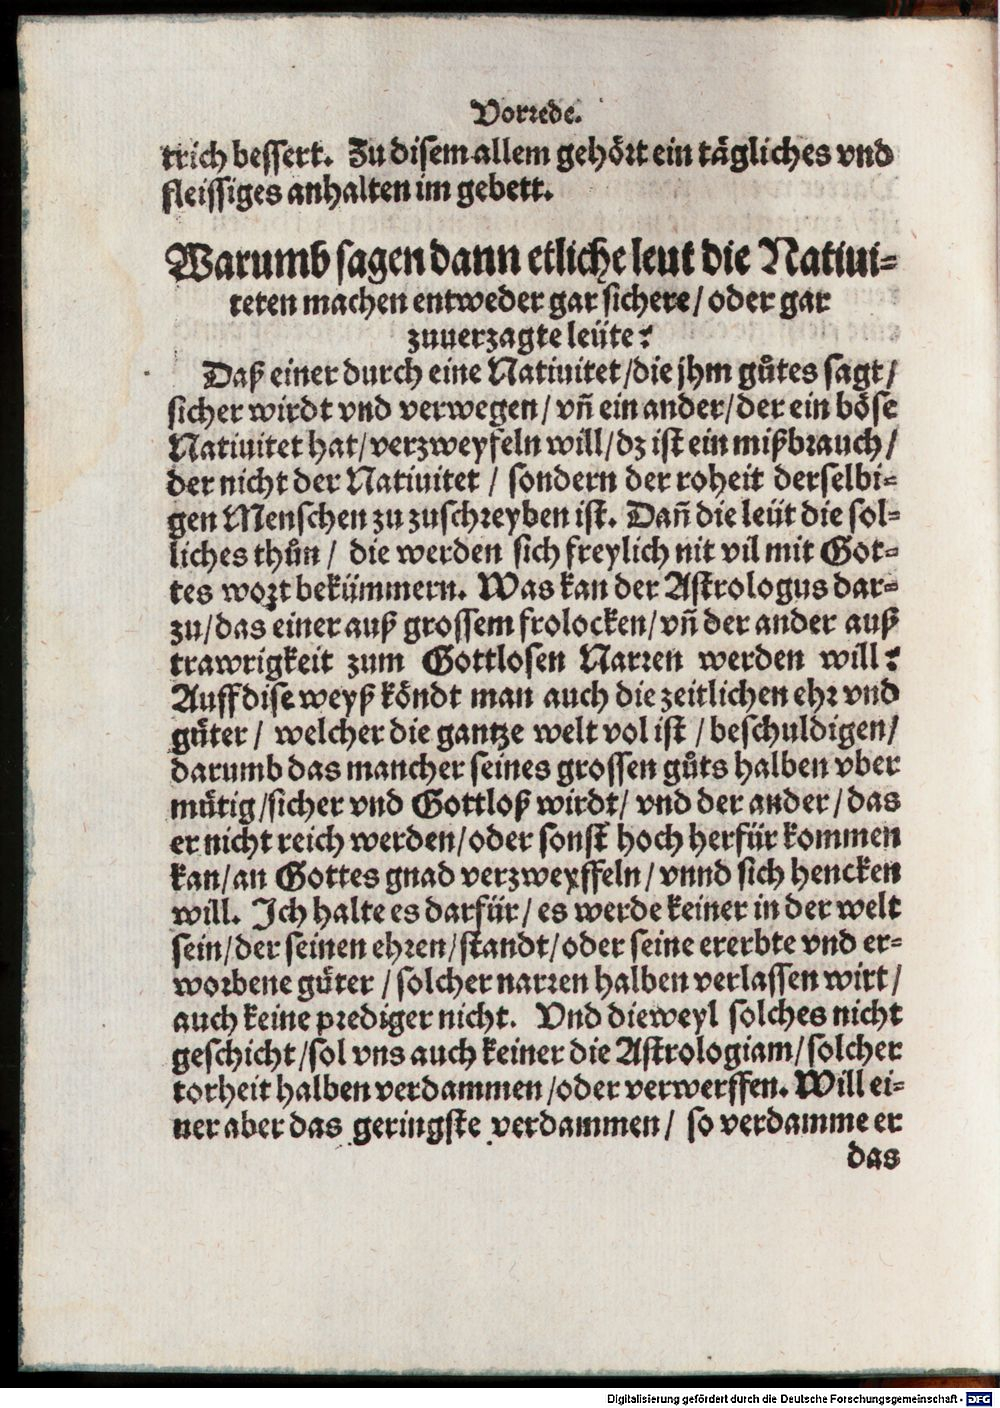 Vorrede.
trich bessert. Zu disem allem gehört ein tägliches vnd
fleissiges anhalten im gebett.
Warumb sagen dann etliche leut die Natiui-
teten machen entweder gar sichere/ oder gar
zuuerzagte leüte?
Daß einer durch eine Natiuitet/die jhm gůtes sagt/
sicher wirdt vnd verwegen/ vñ ein ander/der ein böse
Natiuitet hat/verzweyfeln will/dz ist ein mißbrauch/
der nicht der Natiuitet / sondern der roheit derselbi-
gen Menschen zu zuschreyben ist. Dañ die leüt die sol-
liches thůn / die werden sich freylich nit vil mit Got-
tes wort bekümmern. Was kan der Astrologus dar-
zu/das einer auß grossem frolocken/vñ der ander auß
trawrigkeit zum Gottlosen Narren werden will?
Auff dise weyß köndt man auch die zeitlichen ehr vnd
gůter / welcher die gantze welt vol ist / beschuldigen/
darumb das mancher seines grossen gůts halben vber
mütig/sicher vnd Gottloß wirdt/ vnd der ander/das
er nicht reich werden/oder sonst hoch herfür kommen
kan/an Gottes gnad verzweyffeln/ vnnd sich hencken
will. Ich halte es darfür/ es werde keiner in der welt
sein/der seinen ehren/standt/oder seine ererbte vnd er-
worbene güter / solcher narren halben verlassen wirt/
auch keine prediger nicht. Vnd dieweyl solches nicht
geschicht/sol vns auch keiner die Astrologiam/solcher
torheit halben verdammen/oder verwerffen. Will ei-
ner aber das geringste verdammen/ so verdamme er
das
Digitalisierung gefördert durch die Deutsche Forschungsgemeinschaft - DFG